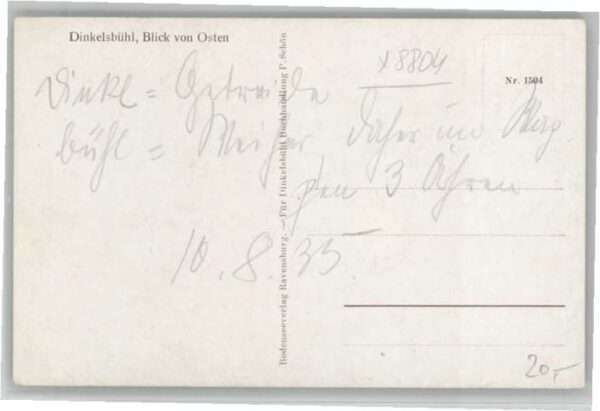 Dinkelsbühl, Blick von Osten
x8804
Nr. 1504
Dinkl = Getreide
bühl = Weiher daher im Wap
pen 3 Ähren
10. 8. 35.
Bodenseeverlag Ravensburg. — Für Dinkelsbühl Buchhandlung F. Schön
20,-